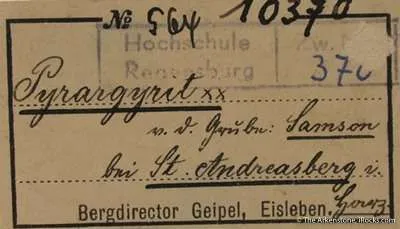 № 564 10370
Hochschule
Regensburg
Zw. N
370
Pyrargyrit xx
v. d. Grube: Samson
bei St. Andreasberg i.
Bergdirector Geipel, Eisleben. Harz.
© The Arkenstone, iRocks.com